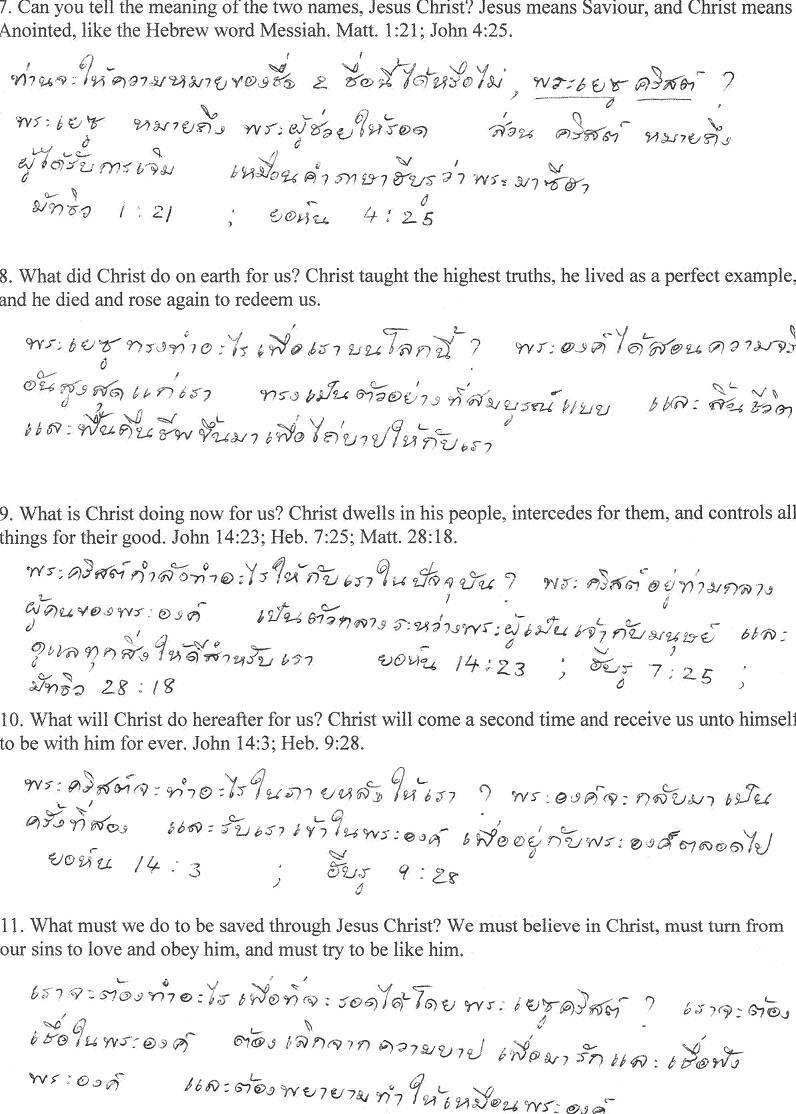 7. Can you tell the meaning of the two names, Jesus Christ? Jesus means Saviour, and Christ means
Anointed, like the Hebrew word Messiah. Matt. 1:21; John 4:25.
ท่านจะให้ความหมายของชื่อ 2 ชื่อนี้ได้หรือไม่, พระเยซู คริสต์ ?
พระเยซู หมายถึง พระผู้ช่วยให้รอด ส่วน คริสต์ หมายถึง
ผู้ได้รับการเจิม เหมือนคำภาษาฮีบรูว่าพระมาซีฮา
มัทธิว 1:21 ; ยอห์น 4:25
8. What did Christ do on earth for us? Christ taught the highest truths, he lived as a perfect example,
and he died and rose again to redeem us.
พระเยซูทรงทำอะไรเพื่อเราบนโลกนี้ ? พระองค์ได้สอนความจริ
อันสูงสุดแก่เรา ทรงเป็นตัวอย่างที่สมบูรณ์แบบ และสิ้นชีวิต
และฟื้นคืนชีพขึ้นมาเพื่อไถ่บาปให้กับเรา
9. What is Christ doing now for us? Christ dwells in his people, intercedes for them, and controls all
things for their good. John 14:23; Heb. 7:25; Matt. 28:18.
พระคริสต์กำลังทำอะไรให้กับเราในปัจจุบัน ? พระคริสต์อยู่ท่ามกลาง
ผู้คนของพระองค์ เป็นตัวกลางระหว่างพระผู้เป็นเจ้ากับมนุษย์ และ
ดูแลทุกสิ่งให้ดีสำหรับเรา ยอห์น 14:23 ; ฮีบรู 7:25 ;
มัทธิว 28:18
10. What will Christ do hereafter for us? Christ will come a second time and receive us unto himself
to be with him for ever. John 14:3; Heb. 9:28.
พระคริสต์จะทำอะไรในภายหลังให้เรา ? พระองค์จะกลับมาเป็น
ครั้งที่สอง และรับเราเข้าในพระองค์ เพื่ออยู่กับพระองค์ตลอดไป
ยอห์น 14:3 ; ฮีบรู 9:28
11. What must we do to be saved through Jesus Christ? We must believe in Christ, must turn from
our sins to love and obey him, and must try to be like him.
เราจะต้องทำอะไร เพื่อที่จะรอดได้โดย พระเยซูคริสต์ ? เราจะต้อง
เชื่อในพระองค์ ต้องเลิกจากความบาป เพื่อมารักและเชื่อฟัง
พระองค์ และต้องพยายามทำให้เหมือนพระองค์